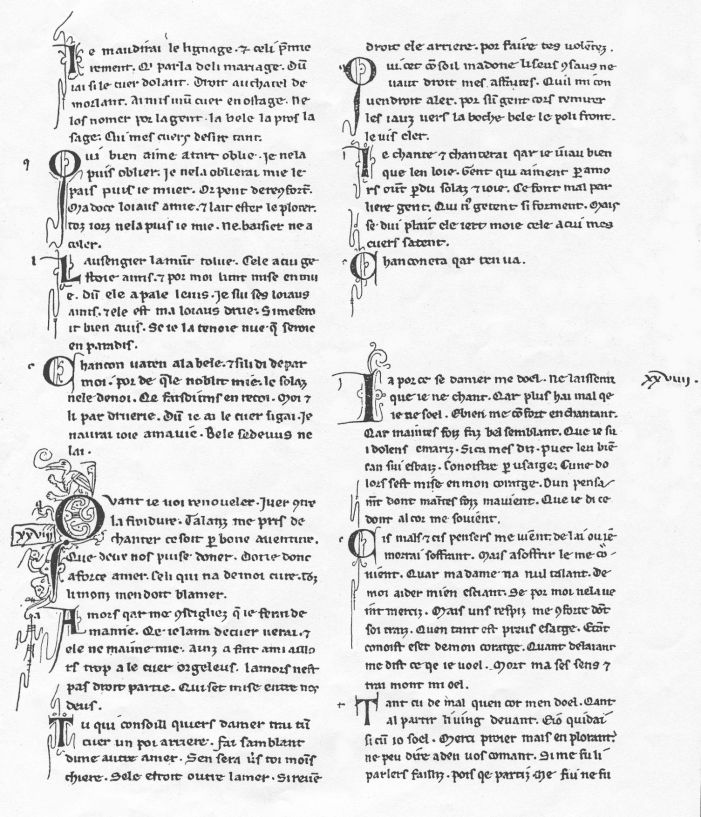 Ie maudirai le lignage. ⁊ celi p̃me
rement. Qi parla deli mariage. Dũ
iai si le cuer dolant. Droit au chatel de
morlant. Ai mis mũ cuer en ostage. Ne
los nomer por la gent. la bele la pros la
sage. Qui mes cuers desire tant.
q Qui bien aime a tart oblie. Ie nela
puis oblier. Ie nela oblierai mie le
pais puis ie muer. Or pent dereyfort.
Ma doce loiaus amie. ⁊ lait ester le plorer.
toz iorz nela puis ie mie. Ne baisier ne a
coler.
l Lausengier la mũt tolue. Cele a cui ge
stoie amis. ⁊ por moi lunt mise en mu
e. dũ ele a pale le uis. Ie sui ses loiaus
amis. ⁊ ele est ma loiaus drue. Si mesero
it bien auis. Se ie la tenoie nue q̃ seroie
en paradis.
c Chancon ua ten ala bele. ⁊ si li di de par
moi. por de q̃le noblit mie. le solaz
nele denoi. Qe faisdiens en recoi. Moi ⁊
li par druerie. Dũ ie ai le cuer si gai. Ie
naurai ioie a ma uie. Bele se de uus ne
lai.
q Quant ie uoi renoueler. Iuer 9tre
la fridure. Talanz me pris de
xxviij chanter ce soit p bone auenture.
Que deus nos puise doner. Goie donc
a force amer. Celi qui na de moi cure. toz
li monz men doit blamer.
a Amors qar me 9seigliez q̃ ie ferai de
mamie. Qe ie laim de cuer uerai. ⁊
ele ne maime mie. Ainz a fait ami aillo
rs trop a le cuer orgeleus. lamors nest
pas droite partie. Qui set mise entre nos
deus.
t Tu qui consoill quiers damer trai tũ
cuer un poi arriere. fai samblant
dune autre amer. Sen sera u's toi moĩs
chiere. Sele estoit outre la mer. Si reuẽ
droit ele arriere. por faire tes uolentez.
Qui cet cõsoil ma done li seus 9saus ne
uaut droit mes assautes. Quil mi con
uendroit aler. por su gent cors remirer
les iauz uers la boche bele le poli front.
le uis cler.
Ie chante ⁊ chanterai qar ie uiau bien
que len loie. Gent qui aiment p amo
rs ount pdu solaz ⁊ ioie. Ce font mal par
liere gent. Qui n9 getent si forment. Mais
se dui plait ele iert moie cele a cui mes
cuers satent.
c Chanconeta qar ten ua.
I Ia por ce se damer me doel. Ne laisserai xxviiii.
que ie ne chant. Qar plus hai mal qe
ie ne soel. Ebien me cõfort en chantant.
Qar maintes foiz faz bel semblant. Que ie su
i dolenz e mariz. Si ca mes diz. puet len biẽ
can sui esbaiz. Conoistre p usaige. Cune do
lors sest mise en mon coraige. Dun pensa
mẽt dont maites foiz mauient. Que ie di ce
dont al cor me souient.
c Cis mals ⁊ cis pensers me uient. de la i ou ie
morrai soffrant. Mais a soffrir le me co
uient. Quar ma dame na nul talant. De
moi aider mien esciant. Se por moi nela ue
int merciz. Mais uns respiz me 9forte dõt
soi traiz. Quen tant est preus e saige. Etost
conoist eset de mon coraige. Quant delaiant
me dist ce qe ie uoel. Mort ma ses sens ⁊
trai mont mi oel.
t Tant cu de mal quen cor men doel. Qant
al partir li uing deuant. Eio quidai
si cũ io soel. Merci proier mais en plorant
ne peu dire a deu uos comant. Si me fu li
parlers failliz. pois qe partiz me fui ne fu